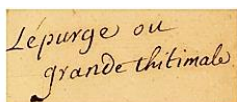 Lépurge ou
grande thitimale